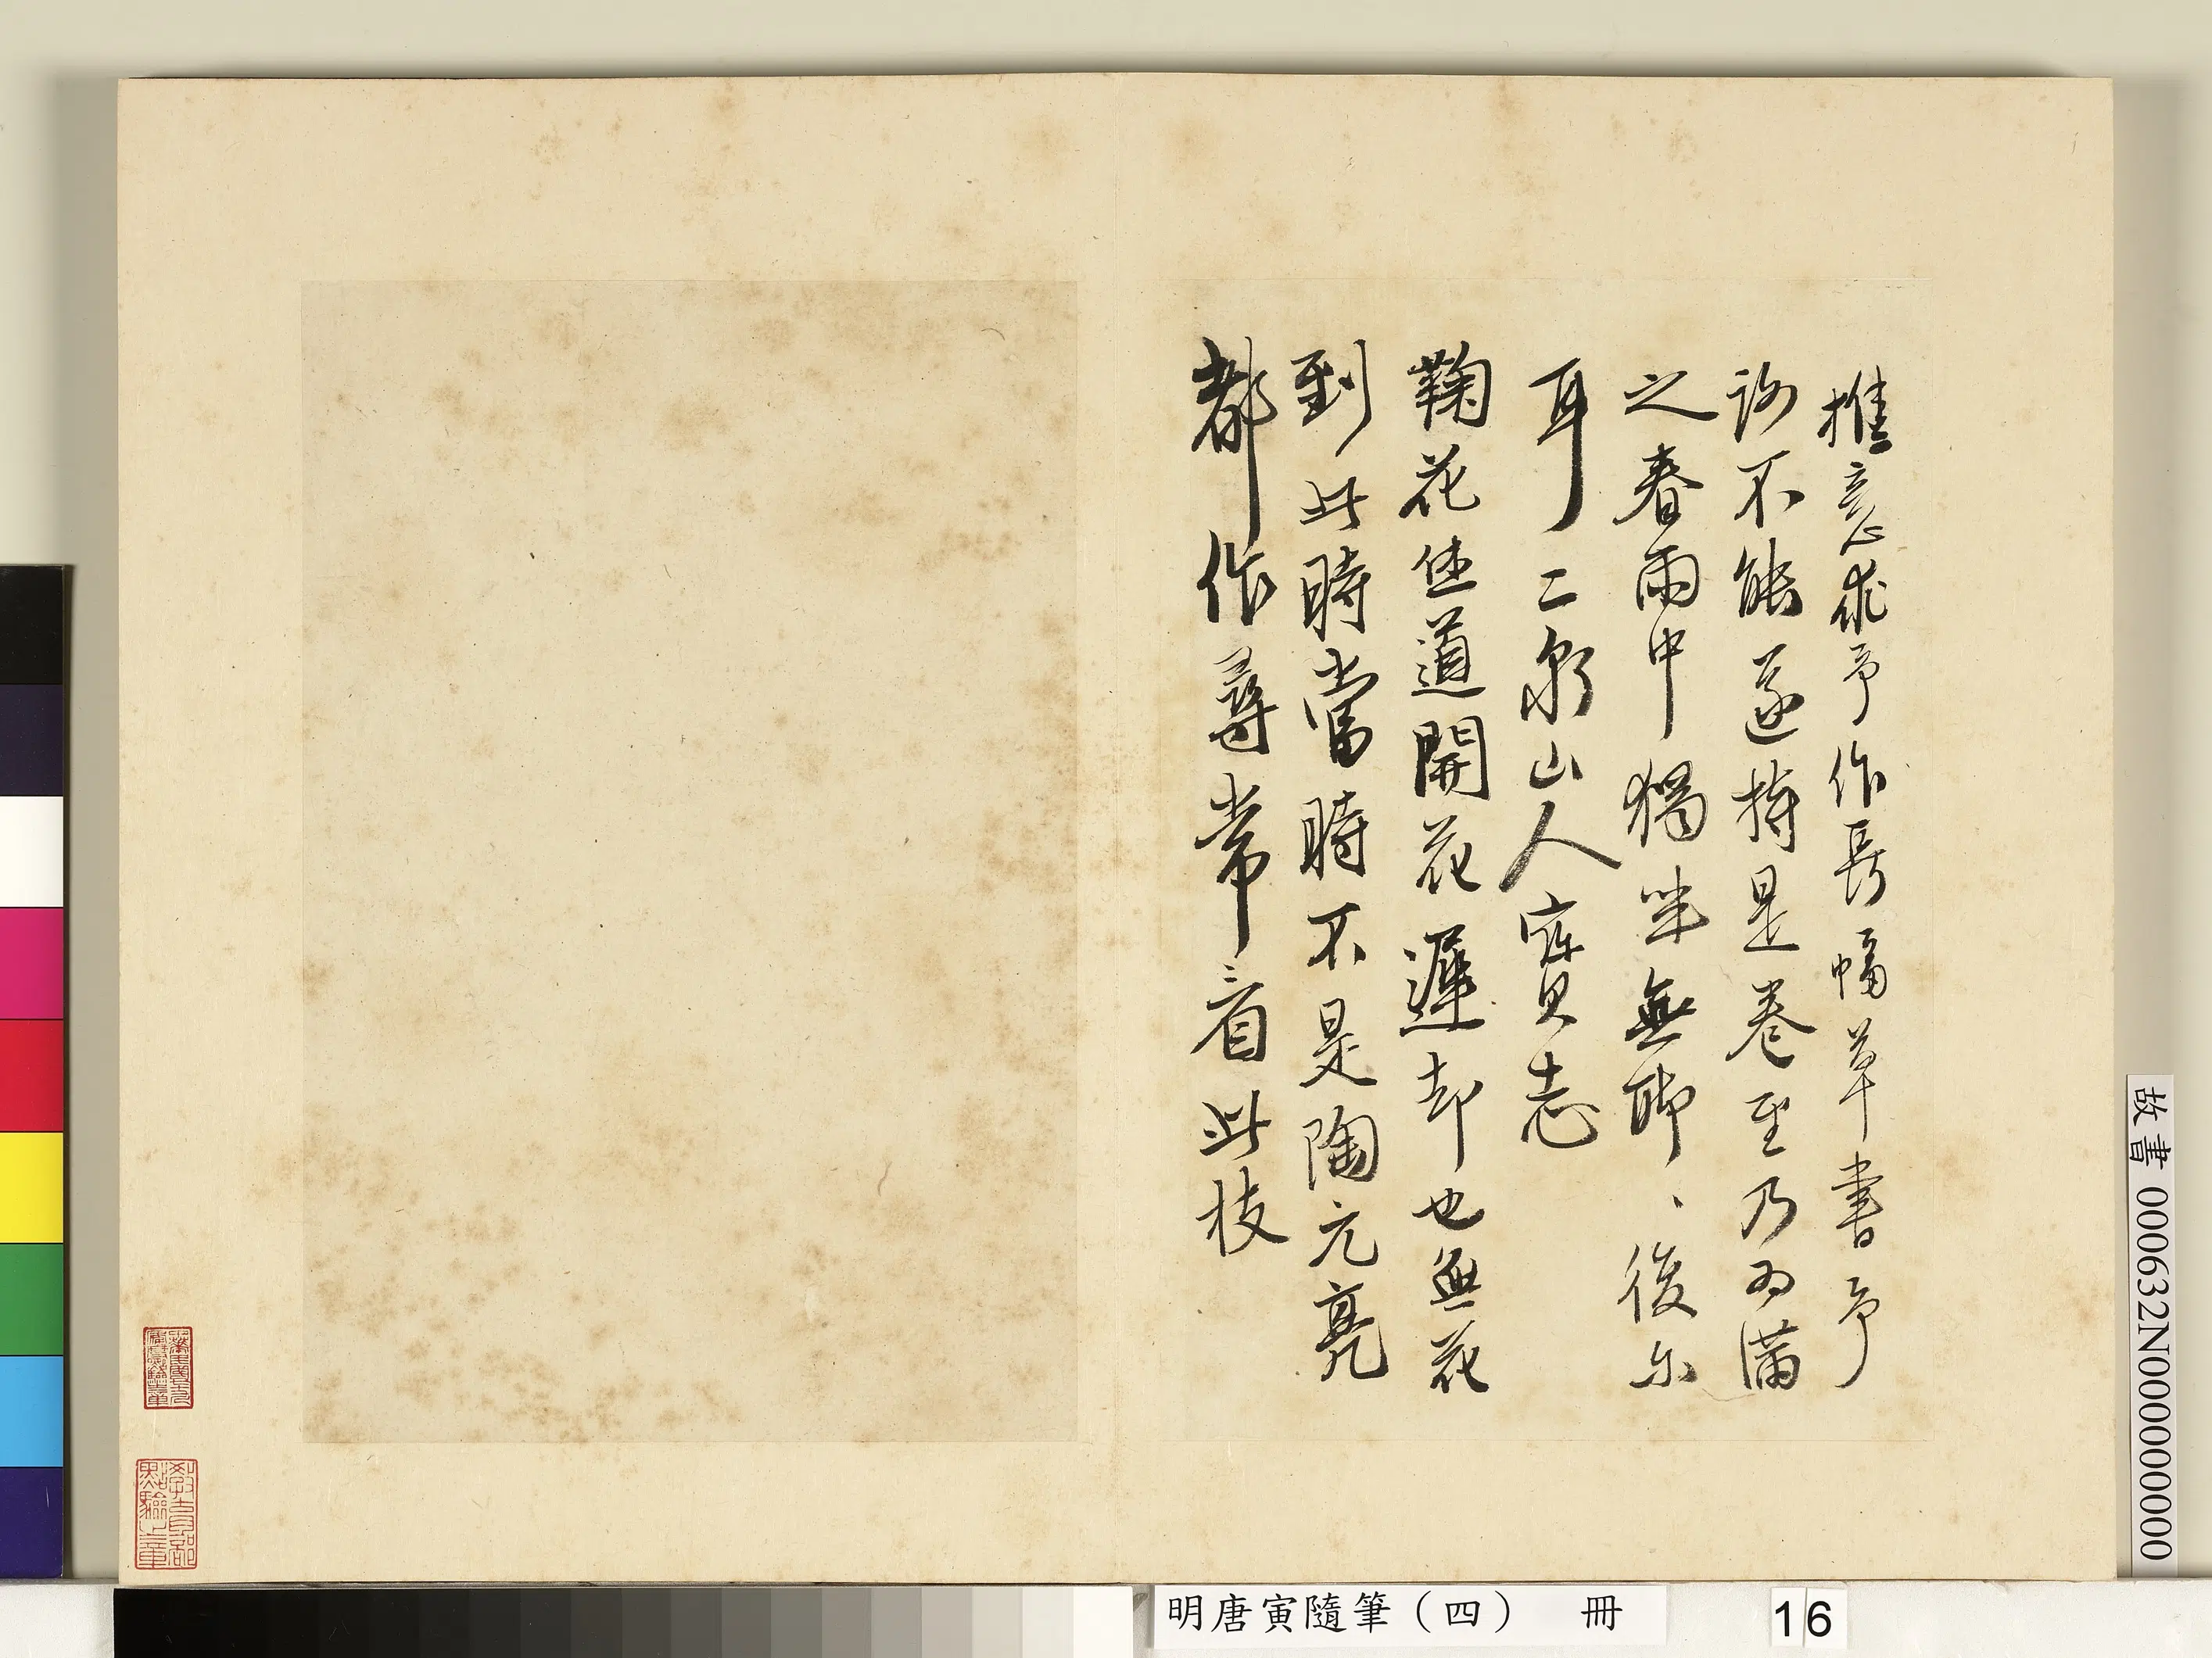 惟意求予作長幅草書予
諾不能遂持是卷至乃為滿
之春雨中獨坐無聊、後尔
耳二泉山人寶志
鞠花佳道開花遲却也無花
到此時當時不是陶元亮
都作尋常看此枝
教育部
點驗之章
故書 000632N000000000
明唐寅隨筆(四) 冊
16